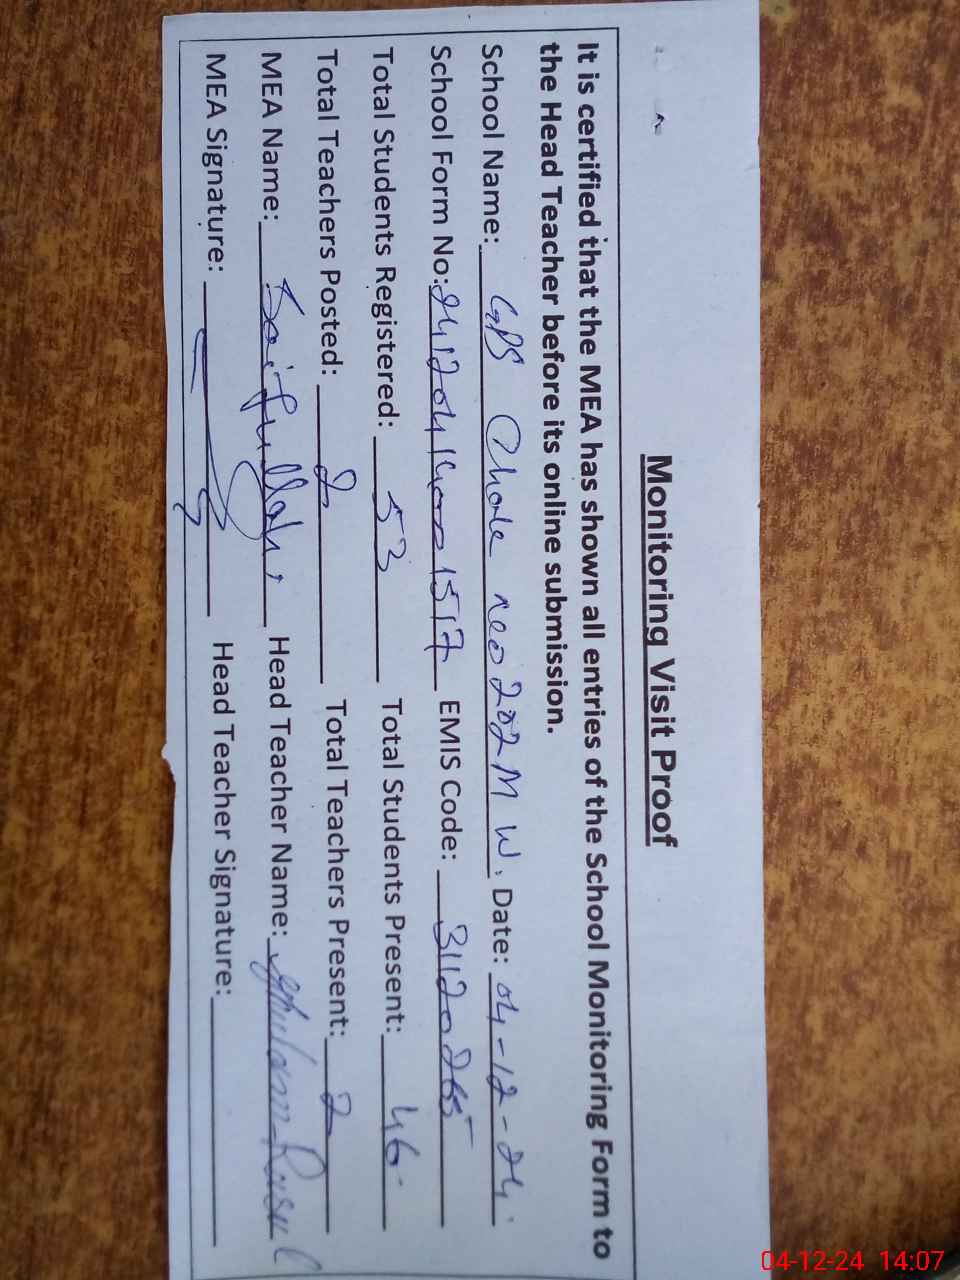 Monitoring Visit Proof
It is certified that the MEA has shown all entries of the School Monitoring Form to
the Head Teacher before its online submission.
School Name: GPS Chak No 202 M W. Date: 04-12-24
School Form No: 2412041 1517 EMIS Code: 31120265
Total Students Registered: 53 Total Students Present: 46
Total Teachers Posted: 2 Total Teachers Present: 2
MEA Name: Saifullah Head Teacher Name: Ghulam Rasul
MEA Signature: Head Teacher Signature:
04-12-24 14:07